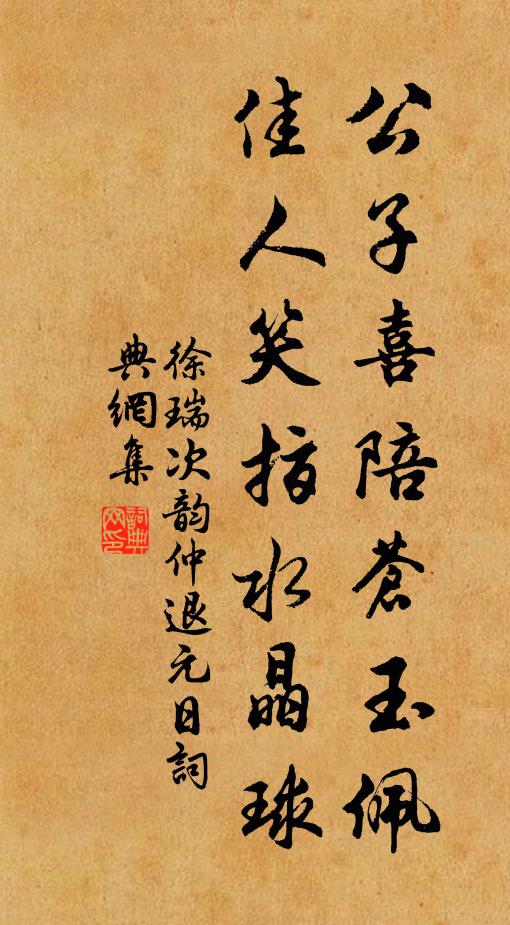 公子喜陪蒼玉佩
佳人笑指水晶球
徐瑞次韵仲退元日詞
典網集
詞典網印